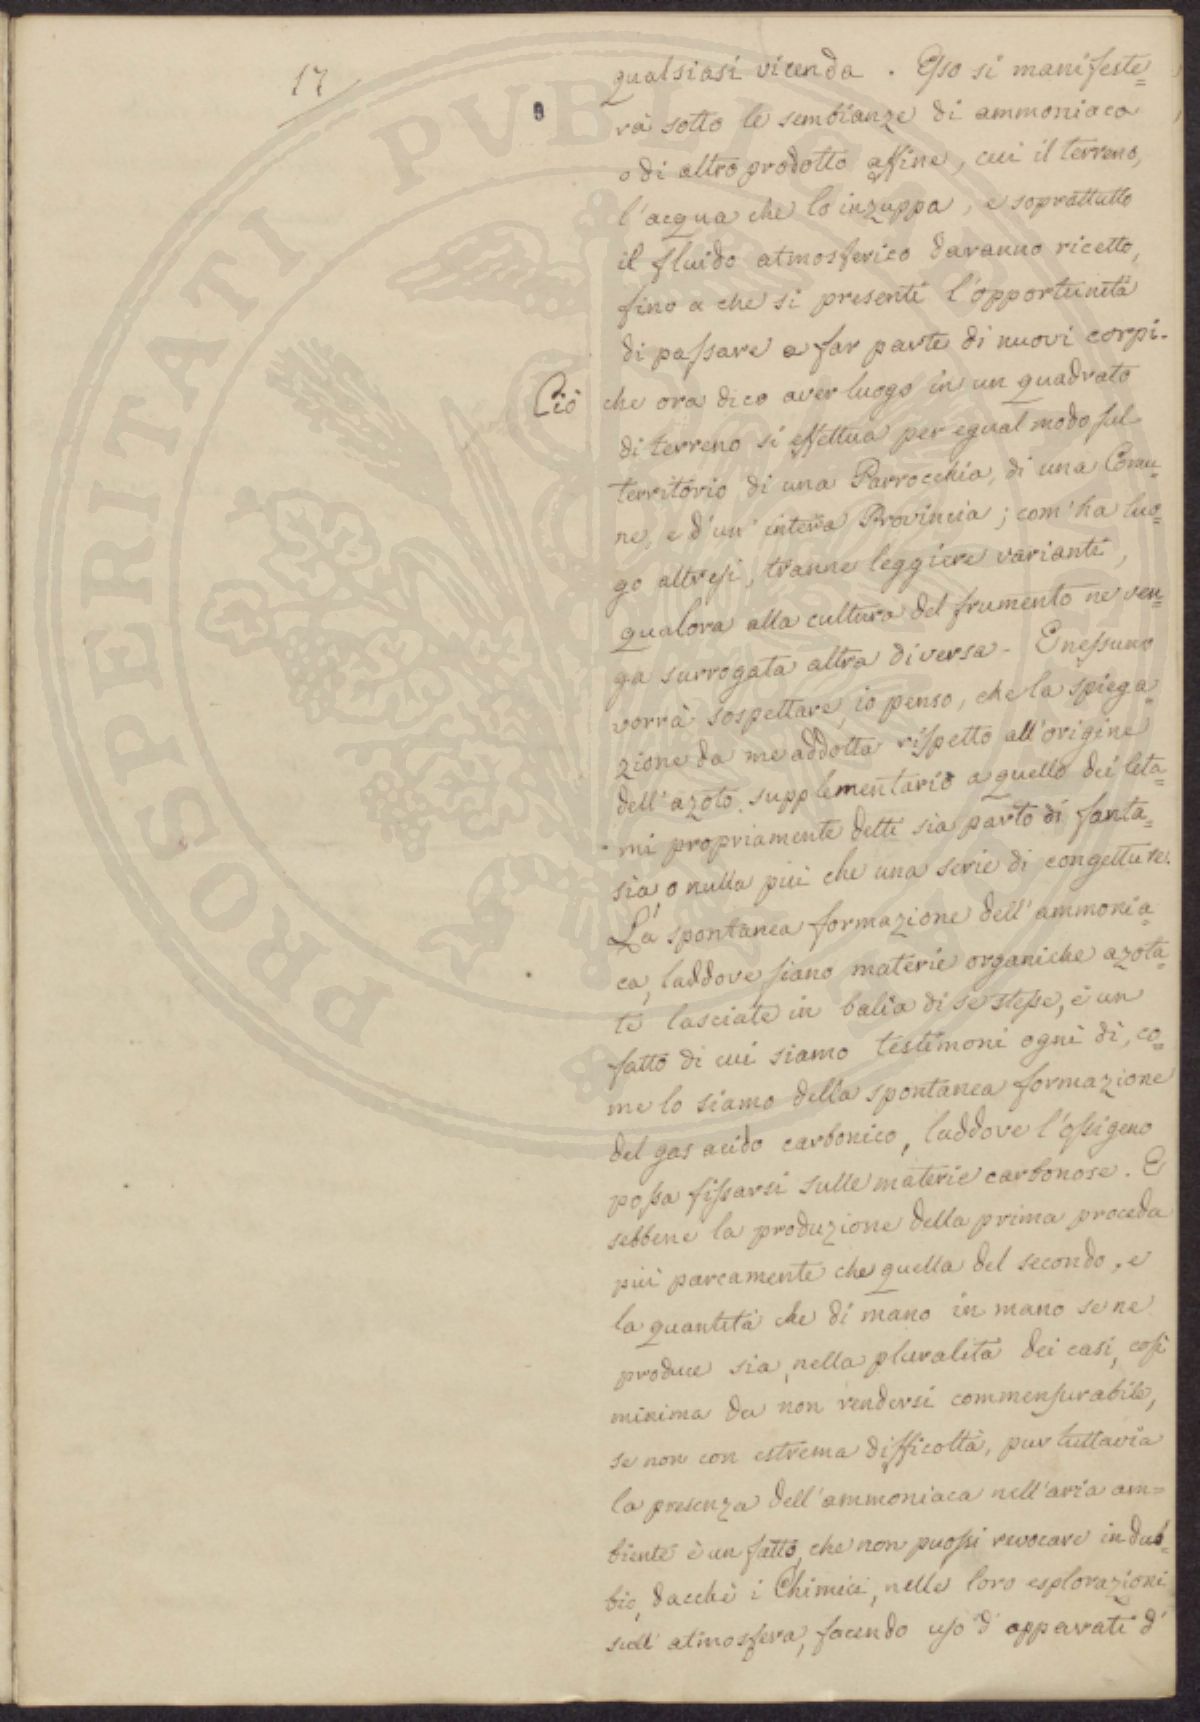 17
qualsiasi vicenda. Esso si manifeste=
rà sotto le sembianze di ammoniaca
o di altro prodotto affine, cui il terreno,
l'acqua che lo inzuppa, e soprattutto
il fluido atmosferico daranno ricetto,
fino a che si presenti l'opportunità
di passare a far parte di nuovi corpi.
Ciò che ora dico aver luogo in un quadrato
di terreno si effettua per egual modo sul
territorio di una Parrocchia, di una Comu=
ne, e d'un' intera Provincia; com' ha luo=
go altresì, tranne leggiere varianti,
qualora alla cultura del frumento ne ven=
ga surrogata altra diversa. E nessuno
vorrà sospettare, io penso, che la spiega=
zione da me addotta rispetto all'origine
dell'azoto supplementario a quello dei leta=
mi propriamente detti sia parto di fanta=
sia o nulla più che una serie di congetture.
La spontanea formazione dell'ammonia=
ca, laddove siano materie organiche azota=
te lasciate in balia di se stesse, è un
fatto di cui siamo testimoni ogni dì, co=
me lo siamo della spontanea formazione
del gas acido carbonico, laddove l'ossigeno
possa fissarsi sulle materie carbonose. E
sebbene la produzione della prima proceda
più parcamente che quella del secondo, e
la quantità che di mano in mano se ne
produce sia, nella pluralità dei casi, così
minima da non rendersi commensurabile,
se non con estrema difficoltà, pur tuttavia
la presenza dell'ammoniaca nell'aria am=
biente è un fatto, che non puossi revocare in dub=
bio, dacchè i Chimici, nelle loro esplorazioni
sull' atmosfera, facendo uso d' apparati d'
PROSPERITATI PVBLICAE